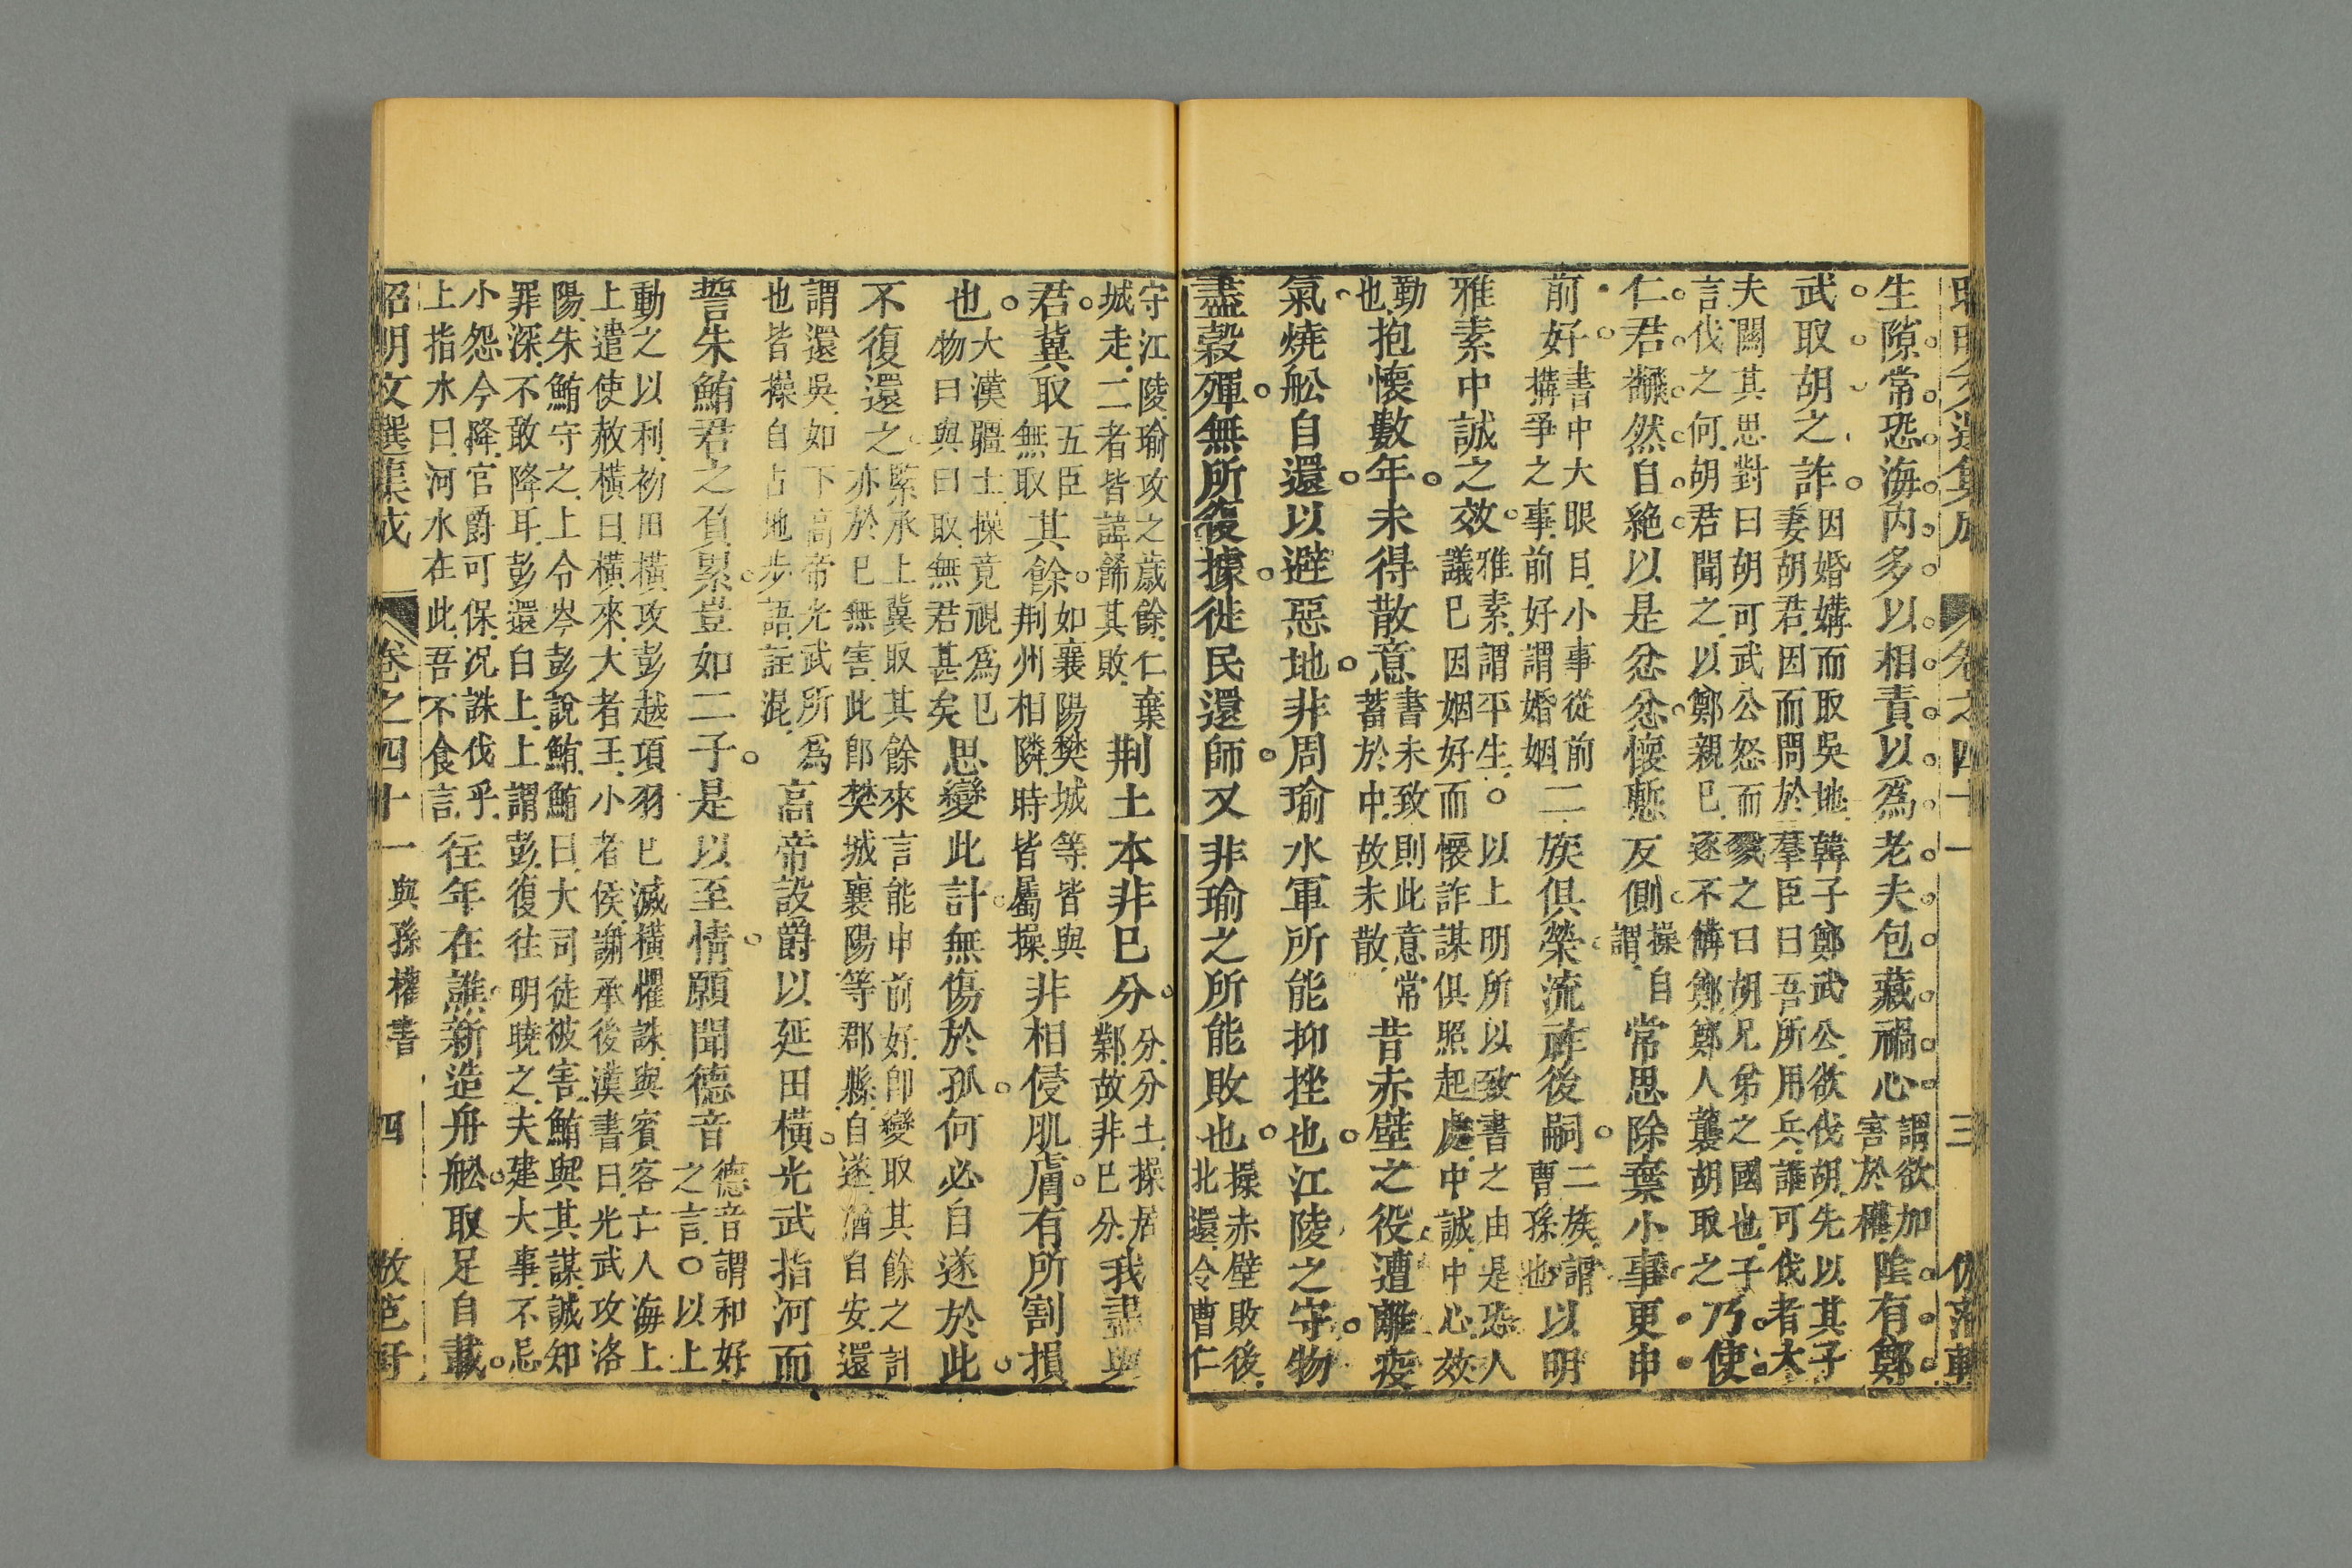 生隙常恐海內多以相責以爲老夫包藏禍心謂欲加害於權陰有鄭
武取胡之詐因婚媾而取吳地韓子鄭武公欲伐胡先以其子妻胡君因而問於羣臣曰吾所用兵誰可伐者大
夫關其思對曰胡可武公怒而戮之曰胡兄弟之國也子言伐之何胡君聞之以鄭親已遂不備鄭鄭人襲胡取之乃使
仁君飜然自絕以是忿忿懷慙反側操自謂常思除棄小事更申
前好書中大眼目小事從前搆爭之事前好謂婚姻二族俱榮流祚後嗣二族謂曹孫也以明
雅素中誠之效雅素謂平生○以上明所以致書之由是恐人議已因姻好而懷詐謀俱照起處中誠中心效
勤也抱懷數年未得散意書未致則此意常蓄於中故未散昔赤壁之役遭離疫
氣燒舩自還以避惡地非周瑜水軍所能抑挫也江陵之守物
盡穀殫無所復據徙民還師又非瑜之所能敗也操赤壁敗後北還令曹仁
守江陵瑜攻之歲餘仁棄城走二者皆諱餙其敗荆土本非已分分分土操居鄴故非已分我盡與
君冀取五臣無取其餘如襄陽樊城等皆與荆州相隣時皆屬操非相侵肌膚有所割損
也大漢疆土操竟視爲已物曰與曰取無君甚矣思變此計無傷於孤何必自遂於此
不復還之緊承上冀取其餘來言能申前好卽變取其餘之計亦於已無害此卽樊城襄陽等郡縣自遂猶自安還
謂還吳如下高帝光武所爲也皆操自占地步語註混高帝設爵以延田橫光武指河而
誓朱鮪君之負累豈如二子是以至情願聞德音德音謂和好之言○以上
動之以利初田橫攻彭越項羽已滅橫懼誅與賓客亡人海上上遣使赦橫曰橫來大者王小者侯謝承後漢書曰光武攻洛
陽朱鮪守之上令岑彭說鮪鮪曰大司徒被害鮪與其謀誠知罪深不敢降耳彭還白上上謂彭復往明曉之夫建大事不忌
小怨今降官爵可保况誅伐乎上指水曰河水在此吾不食言往年在譙新造舟舩取足自載
昭明文選集成 卷之四十一 與孫權書 四